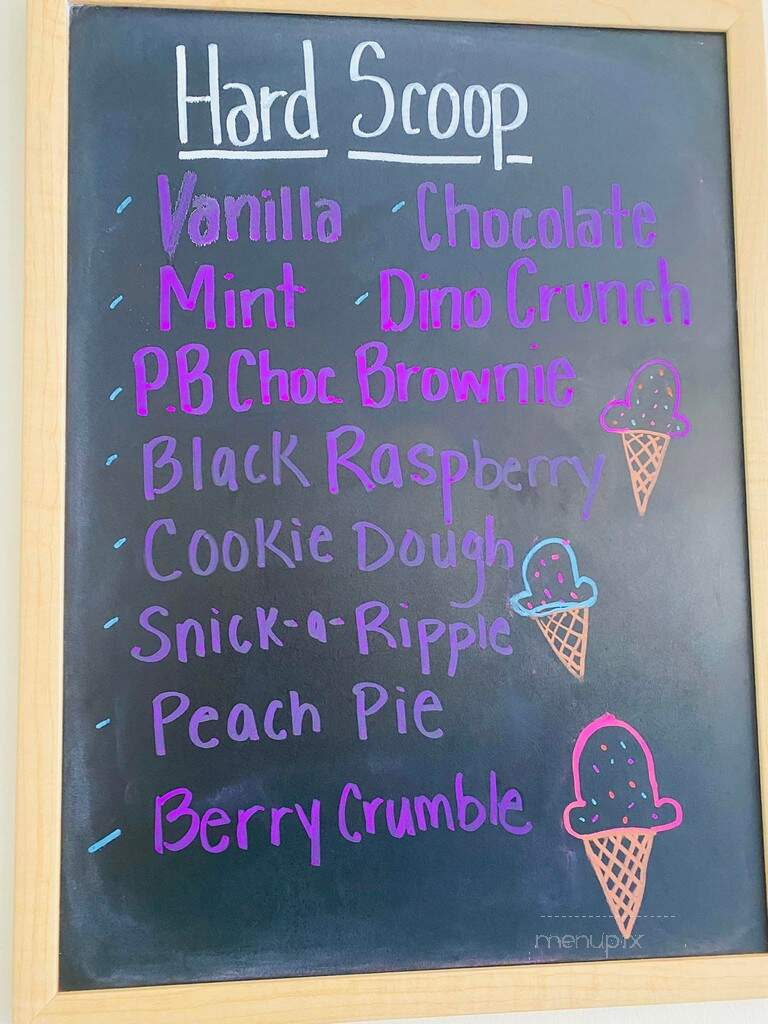 Hard Scoop
- Vanilla - Chocolate
- Mint - Dino Crunch
- P.B Choc Brownie
- Black Raspberry
- Cookie Dough
- Snick-a-Ripple
- Peach Pie
- Berry Crumble
menupix